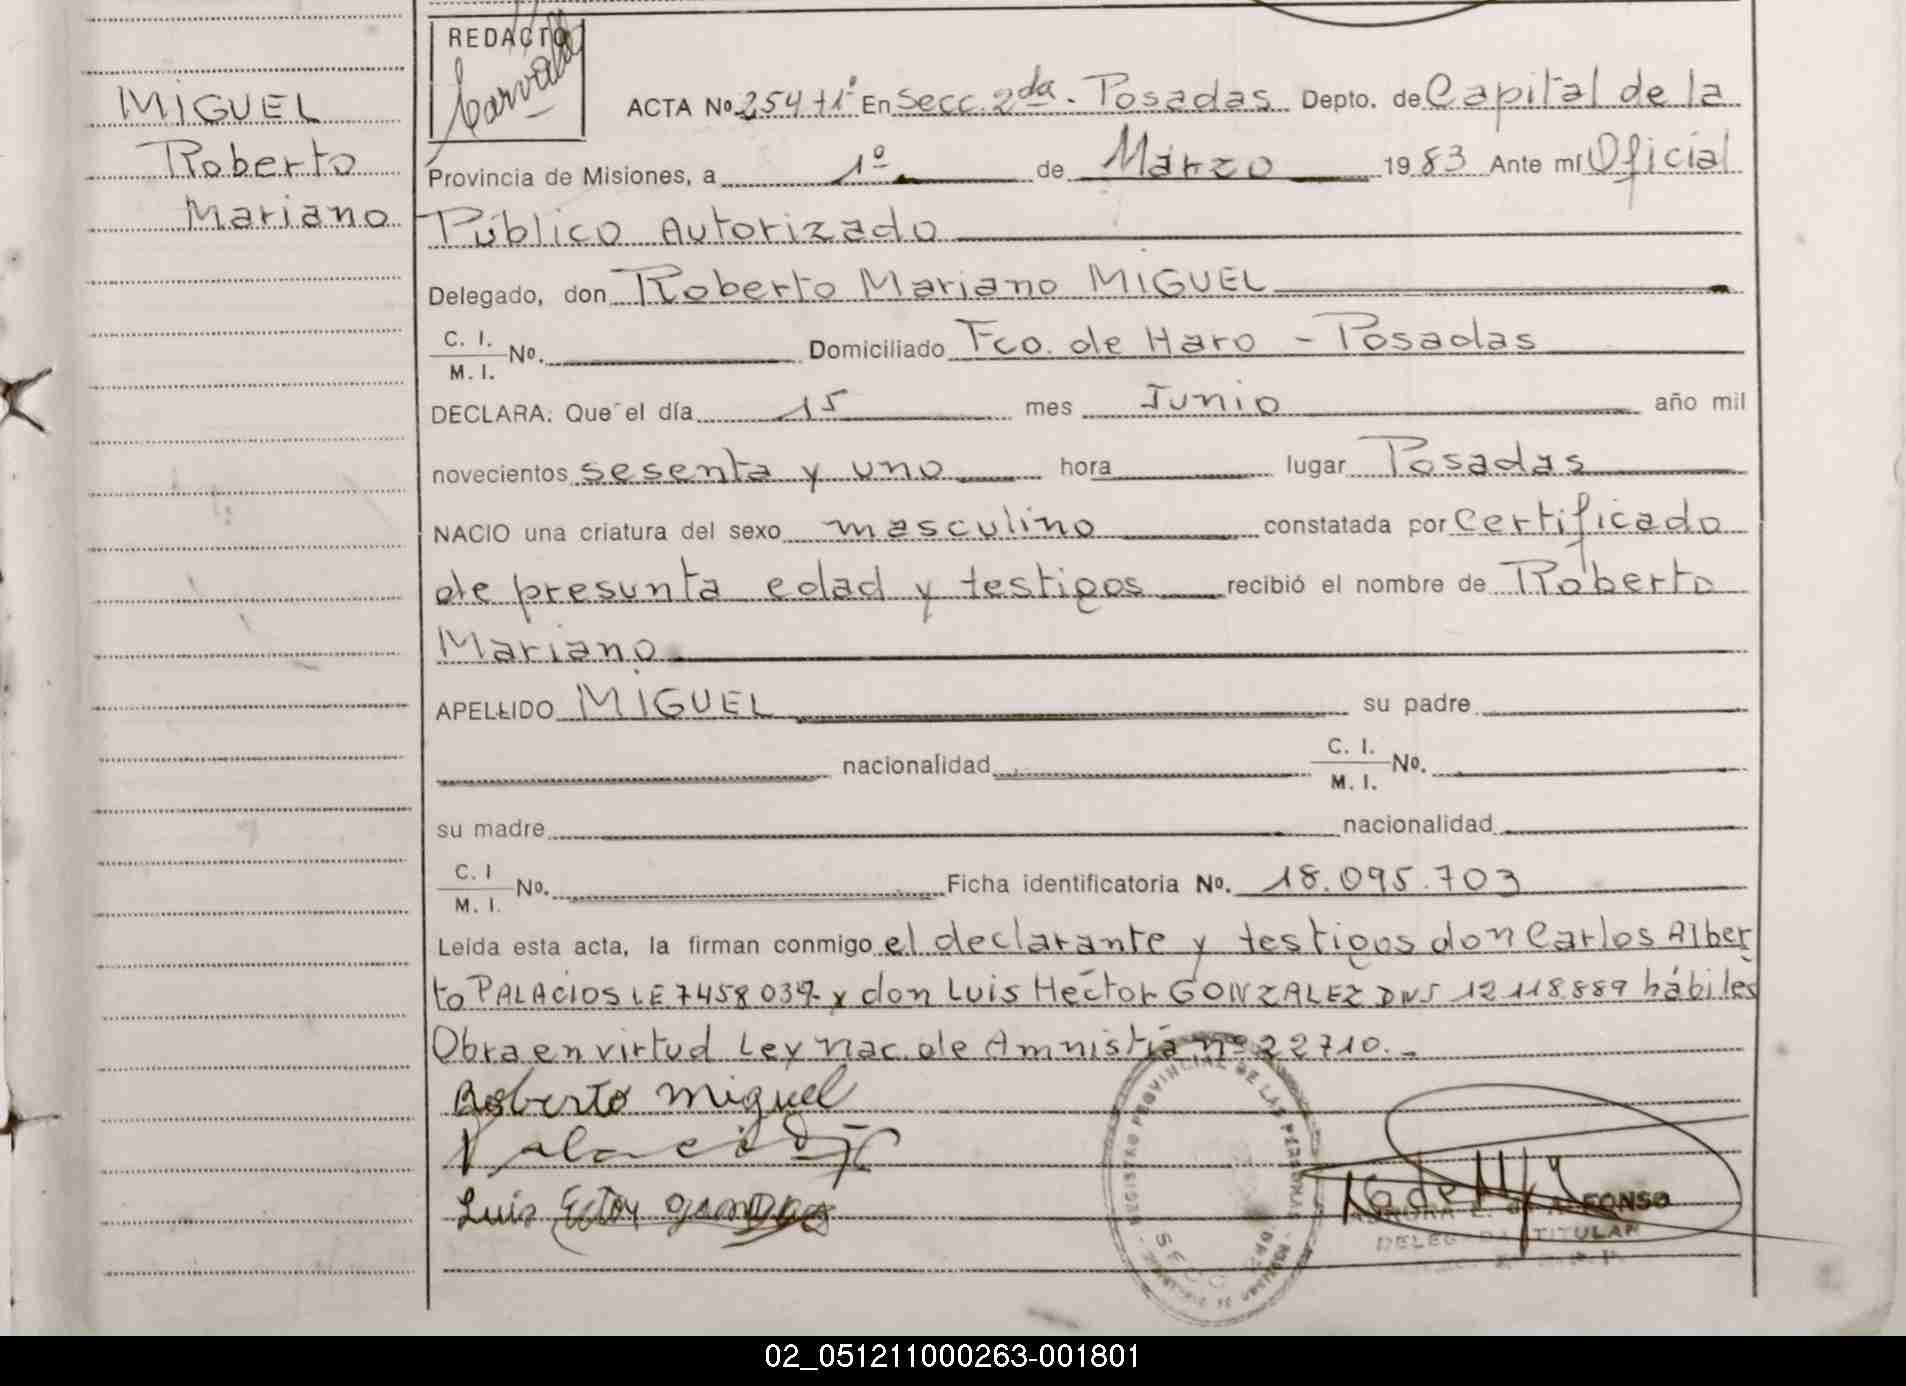 REDACTO
Carvallo
MIGUEL
Roberto
Mariano
ACTA Nº 254 t1º En Secc. 2da. Posadas Depto. de Capital de la
Provincia de Misiones, a 1º de Marzo 1983 Ante mí Oficial
Público Autorizado
Delegado, don Roberto Mariano MIGUEL
C. I.
M. I. Nº. Domiciliado Fco. de Haro - Posadas
DECLARA: Que el día 15 mes Junio año mil
novecientos sesenta y uno hora lugar Posadas
NACIO una criatura del sexo masculino constatada por Certificado
de presunta edad y testigos recibió el nombre de Roberto
Mariano
APELLIDO MIGUEL su padre
nacionalidad C. I.
M. I. Nº.
su madre nacionalidad
C. I
M. I. Nº. Ficha identificatoria Nº. 18.095.703
Leída esta acta, la firman conmigo el declarante y testigos don Carlos Alber
to PALACIOS LE 7458039 y don Luis Héctor GONZALEZ DNI 12118889 hábiles
Obra en virtud Ley Nac. de Amnistía nº 22710.-
Roberto Miguel
Palacios
Luis Ector
REGISTRO PROVINCIAL DE LAS PERSONAS
SECC
AURORA E. de ALFONSO
DELEGADA TITULAR
02_051211000263-001801